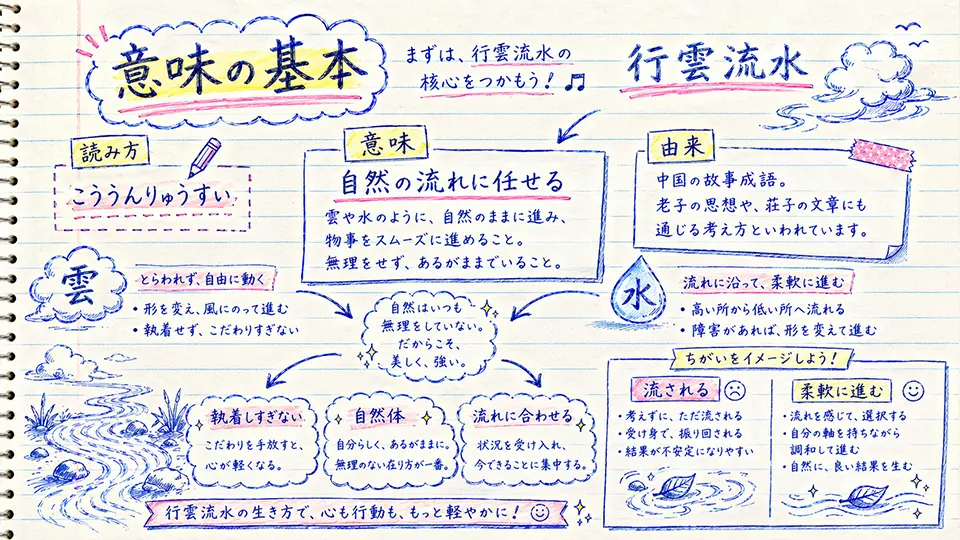 意味の基本
まずは、行雲流水の
核心をつかもう！
行雲流水
読み方
こううんりゅうすい
意味
自然の流れに任せる
雲や水のように、自然のままに進み、
物事をスムーズに進めること。
無理をせず、あるがままでいること。
由来
中国の故事成語。
老子の思想や、荘子の文章にも
通じる考え方といわれています。
雲
とらわれず、自由に動く
・形を変え、風にのって進む
・執着せず、こだわりすぎない
自然はいつも
無理をしていない。
だからこそ、
美しく、強い。
水
流れに沿って、柔軟に進む
・高い所から低い所へ流れる
・障害があれば、形を変えて進む
執着しすぎない
こだわりを手放すと、
心が軽くなる。
自然体
自分らしく、あるがままに。
無理のない在り方が一番。
流れに合わせる
状況を受け入れ、
今できることに集中する。
ちがいをイメージしよう！
流される
・考えずに、ただ流される
・受け身で、振り回される
・結果が不安定になりやすい
柔軟に進む
・流れを感じて、選択する
・自分の軸を持ちながら
調和して進む
・自然に、良い結果を生む
行雲流水の生き方で、心も行動も、もっと軽やかに！